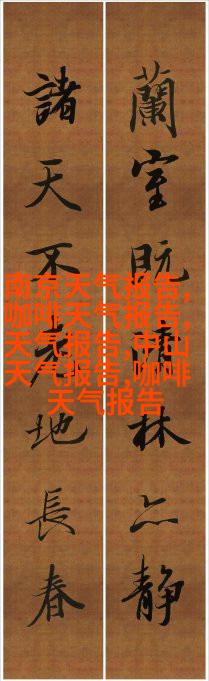 蘭室既林亦静
諸天不老地長春
南京天气报告,
咖啡天气报告,
天气报告,中山
天气报告,咖啡
天气报告